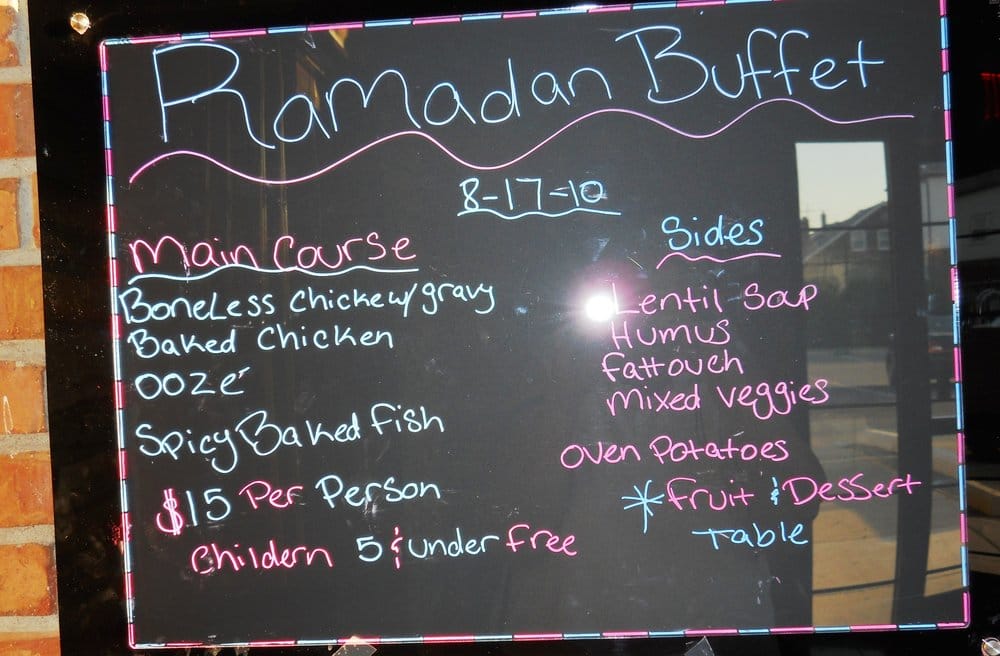 Ramadan Buffet
8-17-10
Main Course
Boneless Chicken w/gravy
Baked Chicken
OOZE
Spicy Baked Fish
$15 Per Person
Childern 5 & under free
Sides
Lentil Soup
Humus
Fattouch
Mixed Veggies
Oven Potatoes
* Fruit & Dessert
Table